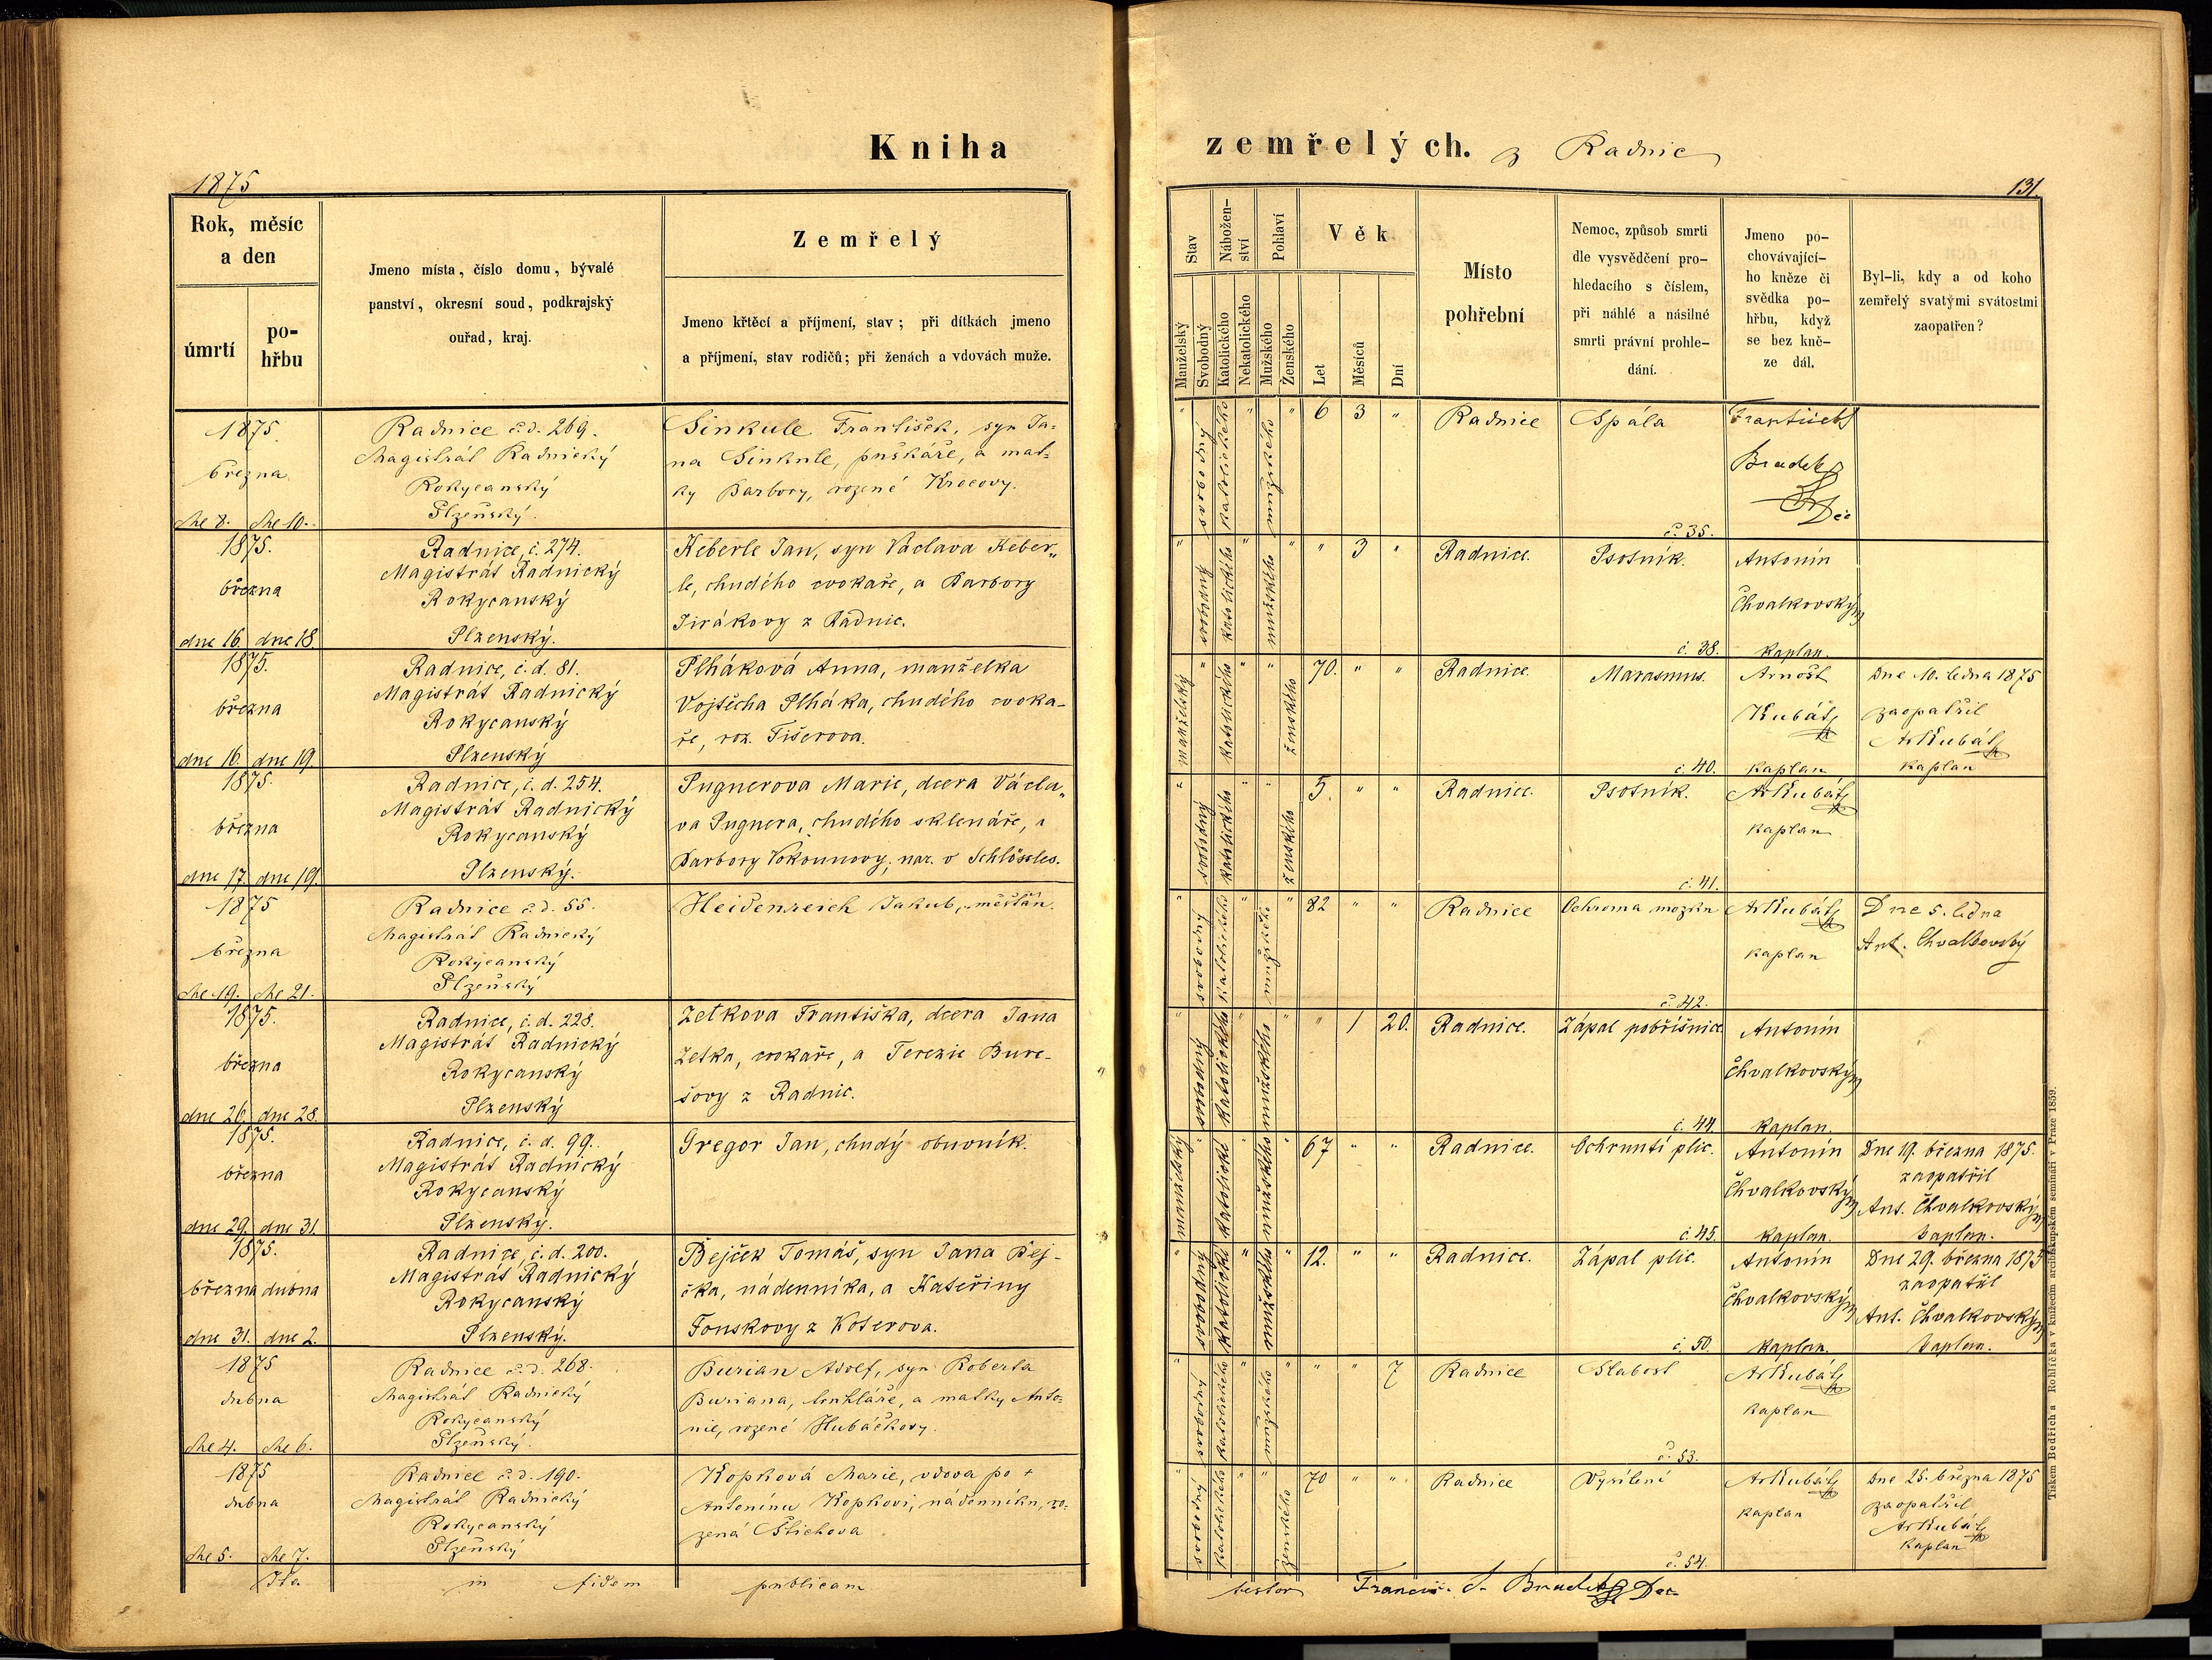 Kniha
zemřelých. z Radnic
1875
131.
Rok, měsíc
a den
úmrtí
po-
hřbu
Jmeno místa, číslo domu, bývalé
panství, okresní soud, podkrajský
ouřad, kraj.
Zemřelý
Jmeno křtěcí a příjmení, stav; při dítkách jmeno
a příjmení, stav rodičů; při ženách a vdovách muže.
Stav
Manželský
Svobodný
Nábožen-
ství
Katolického
Nekatolického
Pohlaví
Mužského
Ženského
Věk
Let
Měsíců
Dní
Místo
pohřební
Nemoc, způsob smrti
dle vysvědčení pro-
hledacího s číslem,
při náhlé a násilné
smrti právní prohle-
dání.
Jmeno po-
chovávající-
ho kněze či
svědka po-
hřbu, když
se bez kně-
ze dál.
Byl-li, kdy a od koho
zemřelý svatými svátostmi
zaopatřen?
1875.
března
dne 8. dne 10.
Radnice č.d. 269.
Magistrát Radnický
Rokycanský
Plzeňský.
Sinkule František, syn Ja-
na Sinkule, puškáře, a mat-
ky Barbory, rozené Krocovy.
" svobodný katolického " mužského " 6 3 "
Radnice
Spála
č. 35.
František
Bradek
Děk
1875.
března
dne 16. dne 18.
Radnice, č. 274.
Magistrát Radnický
Rokycanský
Plzenský.
Keberle Jan, syn Václava Keber„
le, chudého cvokaře, a Barbory
Jirákovy z Radnic.
" svobodný katolického " mužského " " 3 "
Radnice.
Psotník.
č. 38.
Antonín
Chvalkovský
kaplan.
1875.
března
dne 16. dne 19.
Radnice, č. d. 81.
Magistrát Radnický
Rokycanský
Plzenský
Plháková Anna, manželka
Vojtěcha Plháka, chudého cvoka-
ře, roz. Fišerova.
manželský " katolického " " ženského 70. " "
Radnice.
Marasmus.
č. 40.
Arnošt
Kubát
kaplan
Dne 10. ledna 1875
zaopatřil
ArKubát
kaplan
1875.
března
dne 17. dne 19.
Radnice, č. d. 254.
Magistrát Radnický
Rokycanský
Plzenský.
Pugnerova Marie, dcera Václa„
va Pugnera, chudého sklenáře, a
Barbory Vokounovy, nar. v Schlösseles.
" svobodný katolického " " ženského 5. " "
Radnice.
Psotník.
č. 41.
ArKubát
kaplan
1875
března
dne 19. dne 21.
Radnice č.d. 55.
Magistrát Radnický
Rokycanský
Plzeňský
Heidenreich Jakub, měšťan.
" svobodný katolického " mužského " 82 " "
Radnice
Ochroma mozku
č. 42.
ArKubát
kaplan
Dne 5. ledna
Ant. Chvalkovský
1875.
března
dne 26. dne 28.
Radnice, č. d. 228.
Magistrát Radnický
Rokycanský
Plzenský
Zetkova Františka, dcera Jana
Zetka, cvokaře, a Terezie Bure-
šovy z Radnic.
" svobodný katolického " mužského " " 1 20.
Radnice.
Zápal pobřišnice
č. 44.
Antonín
Chvalkovský
kaplan.
1875.
března
dne 29. dne 31.
Radnice, č. d. 99.
Magistrát Radnický
Rokycanský
Plzenský.
Gregor Jan, chudý obuvník.
manželský " katolické " mužského " 67 " "
Radnice.
Ochrnutí plic.
č. 45.
Antonín
Chvalkovský
kaplan.
Dne 19. března 1875.
zaopatřil
Ant. Chvalkovský
kaplan.
1875.
března dubna
dne 31. dne 2.
Radnice, č. d. 200.
Magistrát Radnický
Rokycanský
Plzenský.
Bejček Tomáš, syn Jana Bej-
čka, nádenníka, a Kateřiny
Fonskovy z Koterova.
" svobodný katolické " mužského " 12. " "
Radnice.
Zápal plic.
č. 50.
Antonín
Chvalkovský
kaplan.
Dne 29. března 1875
zaopatřil
Ant. Chvalkovský
kaplan.
1875
dubna
dne 4. dne 6.
Radnice č.d. 268.
Magistrát Radnický
Rokycanský
Plzeňský.
Burian Adolf, syn Roberta
Buriana, truhláře, a matky Anto-
nie, rozené Hubáčkovy.
" svobodný katolického " mužského " " " 7
Radnice
Slabost
č. 53.
ArKubát
kaplan
1875
dubna
dne 5. dne 7.
Radnice č.d. 190.
Magistrát Radnický
Rokycanský
Plzeňský
Kopková Marie, vdova po †
Antonínu Kopkovi, nádenníku, ro-
zená Stichova
" svobodný katolického " " ženského 70 " "
Radnice
Vysílení
č. 54.
ArKubát
kaplan
Dne 25. března 1875
zaopatřil
ArKubát
kaplan
Ita in fidem publicam
testor Francis. S. Bradek Dec
Tiskem Bedřicha Rohlíčka v knížecím arcibiskupském semináři v Praze 1859.